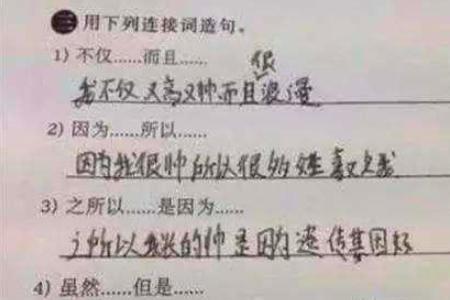 三 用下列连接词造句。
1) 不仅……而且……
很
我不仅又高又帅而且浪漫
2) 因为……所以……
因为我很帅所以很多女喜欢我
3) 之所以……是因为……
之所以我长的帅是因为遗传基因好
4) 虽然……但是……